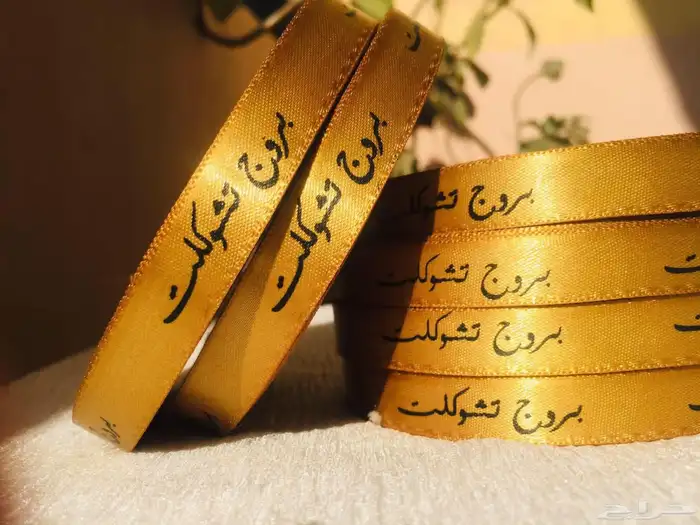 بروج تشوكلت
بروج تشوكلت
بروج تشوكل
بروج تشوكلت
بروج تشوكلت
بروج تشوكلت
حراج